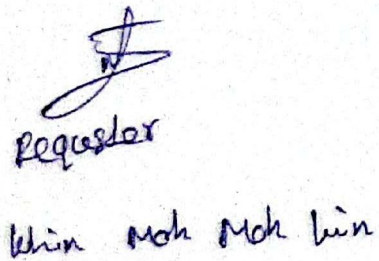 Requster
Khin Moh Moh Lin